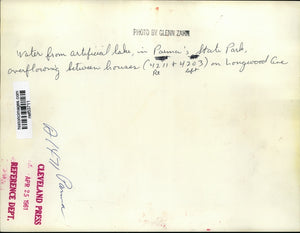 PHOTO BY GLENN ZAHN
Water from artificial lake, in Parma's State Park,
overflowing between houses (4211 + 4203) on Longwood Ave
Parma
CLEVELAND PRESS
APR 25 1961
REFERENCE DEPT.